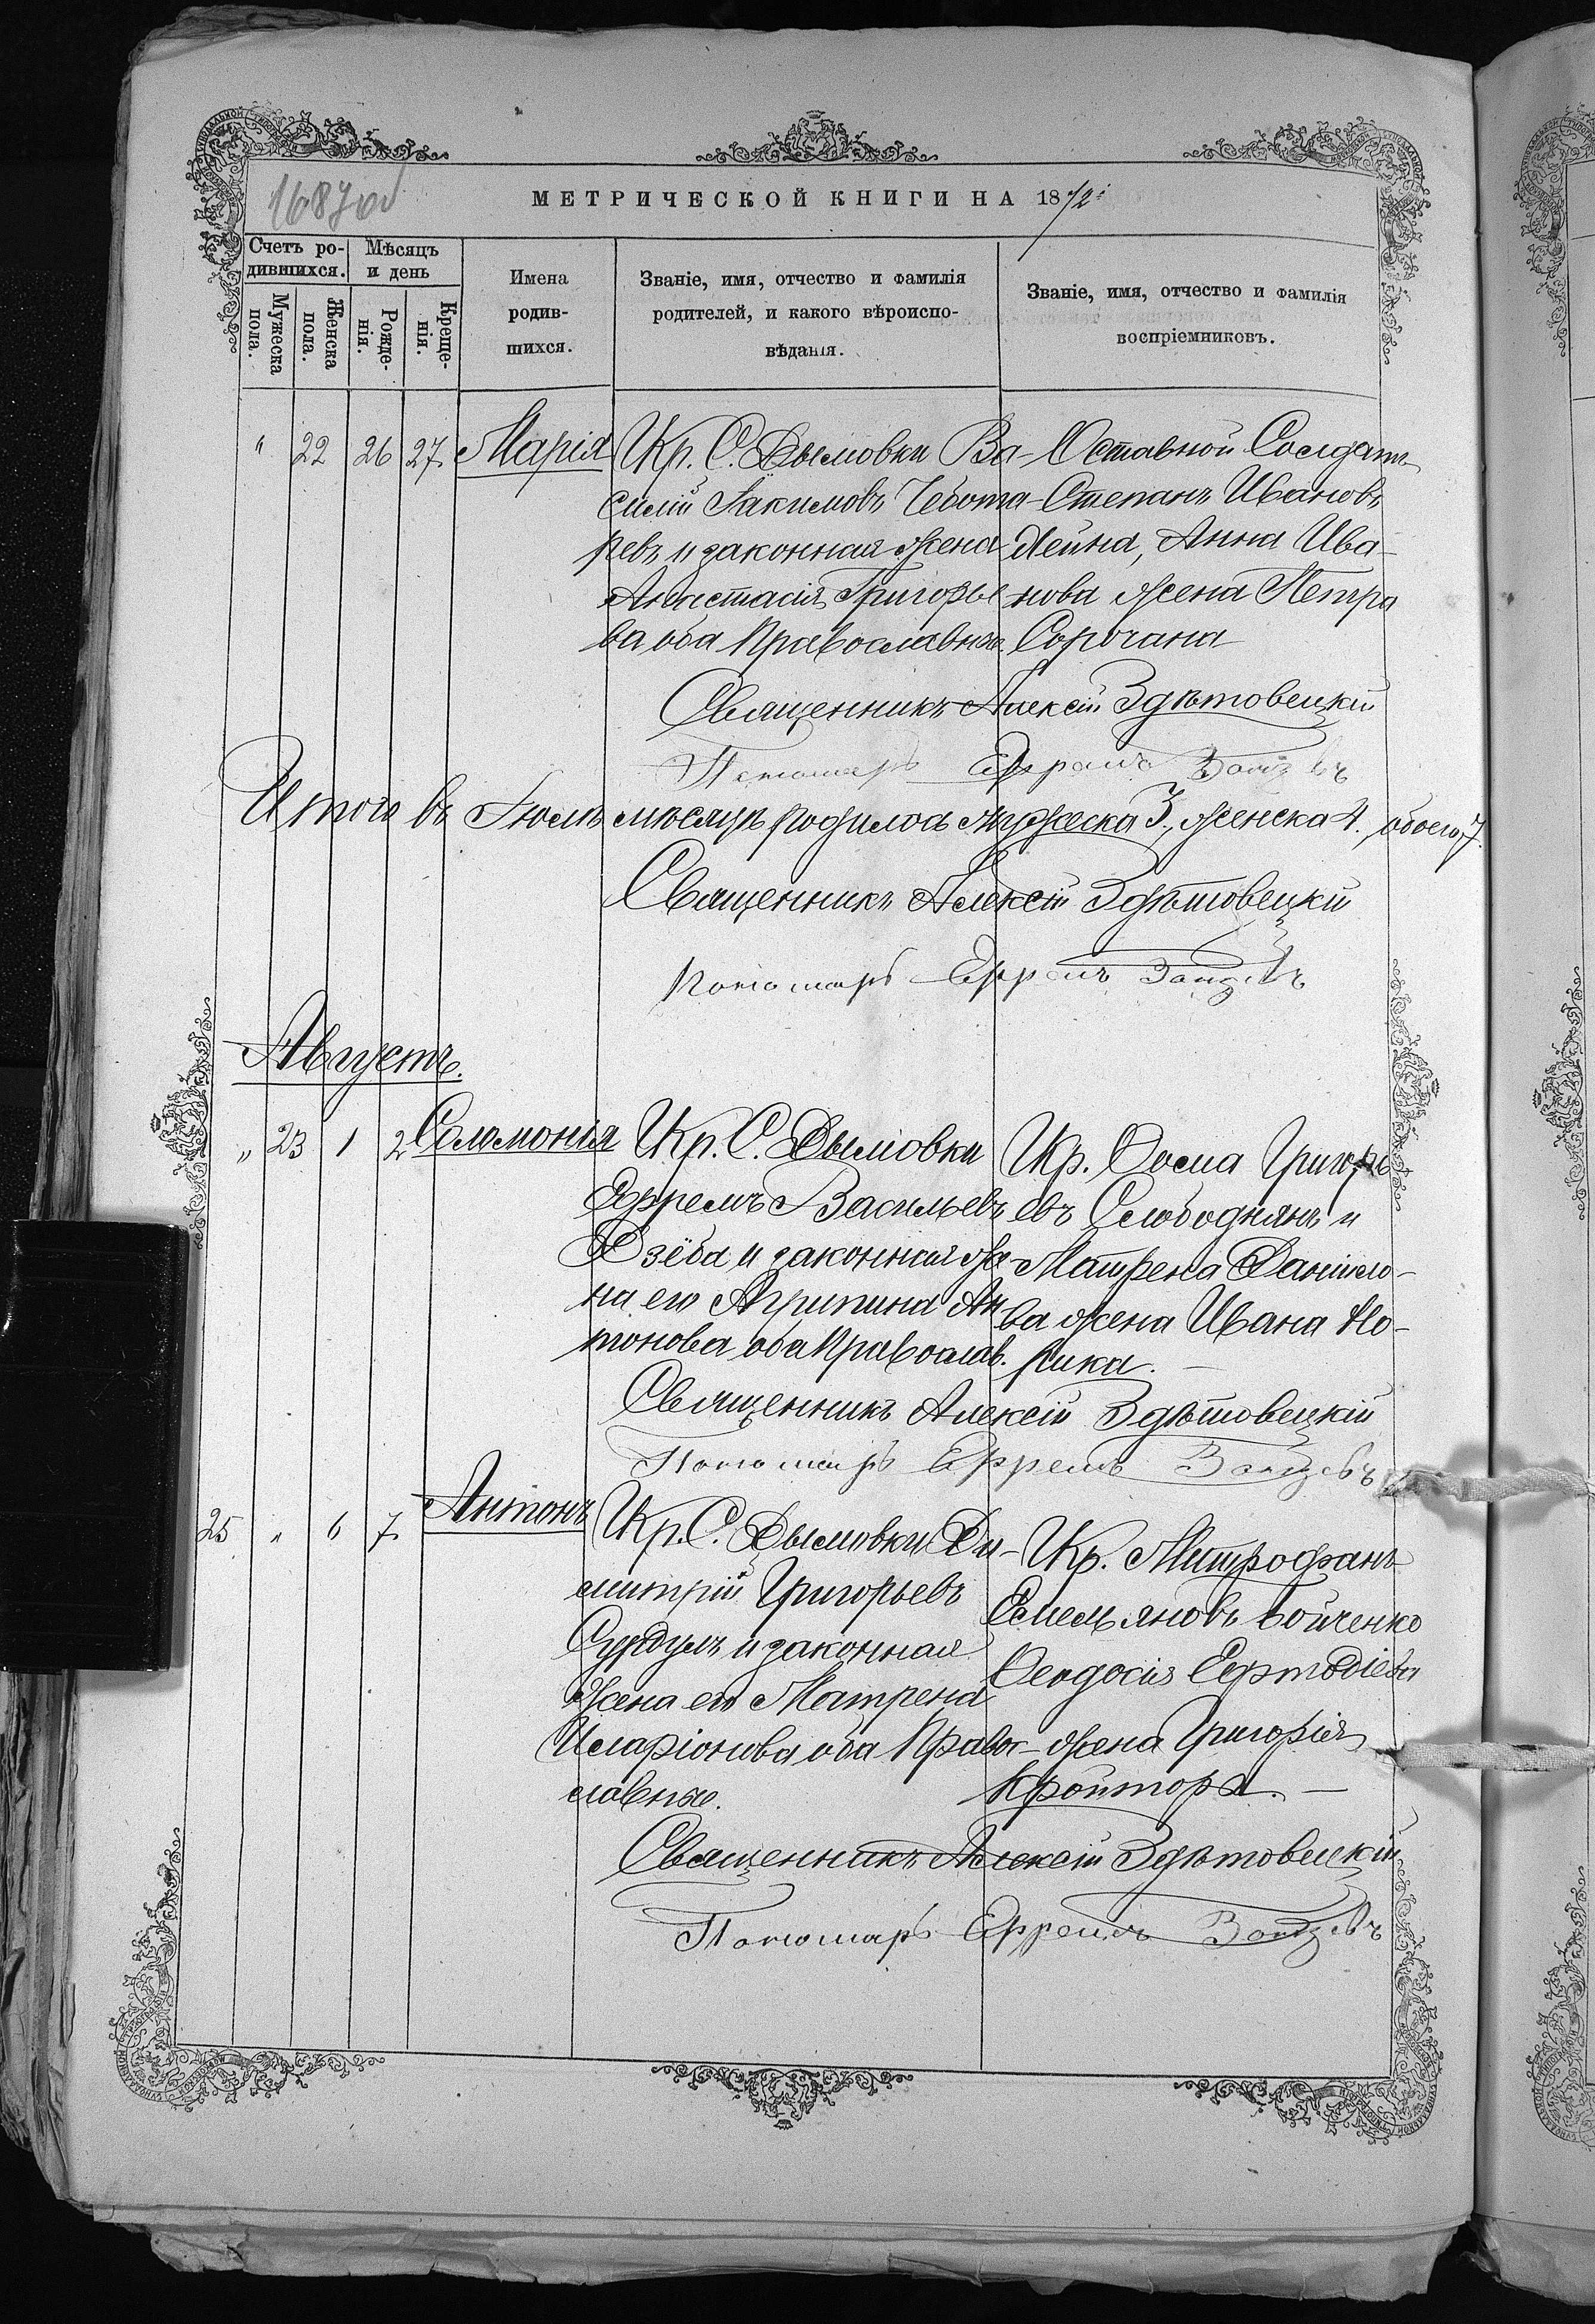 1687об
МЕТРИЧЕСКОЙ КНИГИ НА 1872й
Счетъ ро-
дившихся.
Мужеска
пола.
Женска
пола.
Мѣсяцъ
и день
Рожде-
нія.
Креще-
нія.
Имена
родив-
шихся.
Званіе, имя, отчество и фамилія
родителей, и какого вѣроиспо-
вѣданія.
Званіе, имя, отчество и фамилія
воспріемниковъ.
" 22 26 27. Марія
Цкр. С. Дымовки Ва-
силій Іакимовъ Чебота-
ревъ и законная жена
Анастасія Григорье
ва оба Православные.
Оставной Солдатъ
Степанъ Ивановъ
Лейна, Анна Ива-
нова жена Петра
Сорочана
Священникъ Алексій Здѣтовецкій
Пономарь Ефремъ
Итого въ Іюлѣ мѣсяцѣ родилось мужеска 3., женска 4., обоего 7.
Священникъ Алексій Здѣтовецкій
Пономарь Ефремъ
Августъ.
" 23 1 2 Соломонія
Цкр. С. Дымовки
Ефремъ Васильевъ
Дзёба и законная же-
на его Агрипина Ан
тонова оба Православ.
Цкр. Ѳома Григорь
евъ Слободянъ и
Матрена Данило-
ва жена Ивана Но-
рика.
Священникъ Алексій Здѣтовецкій
Пономарь Ефремъ
25 " 6 7. Антонъ
Цкр. С. Дымовки Ди-
митрій Григорьевъ
Сурдулъ и законная
жена его Матрена
Иларіонова оба Право-
славные.
Цкр. Митрофанъ
Емельяновъ Бойченко
Ѳеодосія Ефтодіева
жена Григорія
Кройтора.
Священникъ Алексій Здѣтовецкій
Пономарь Ефремъ